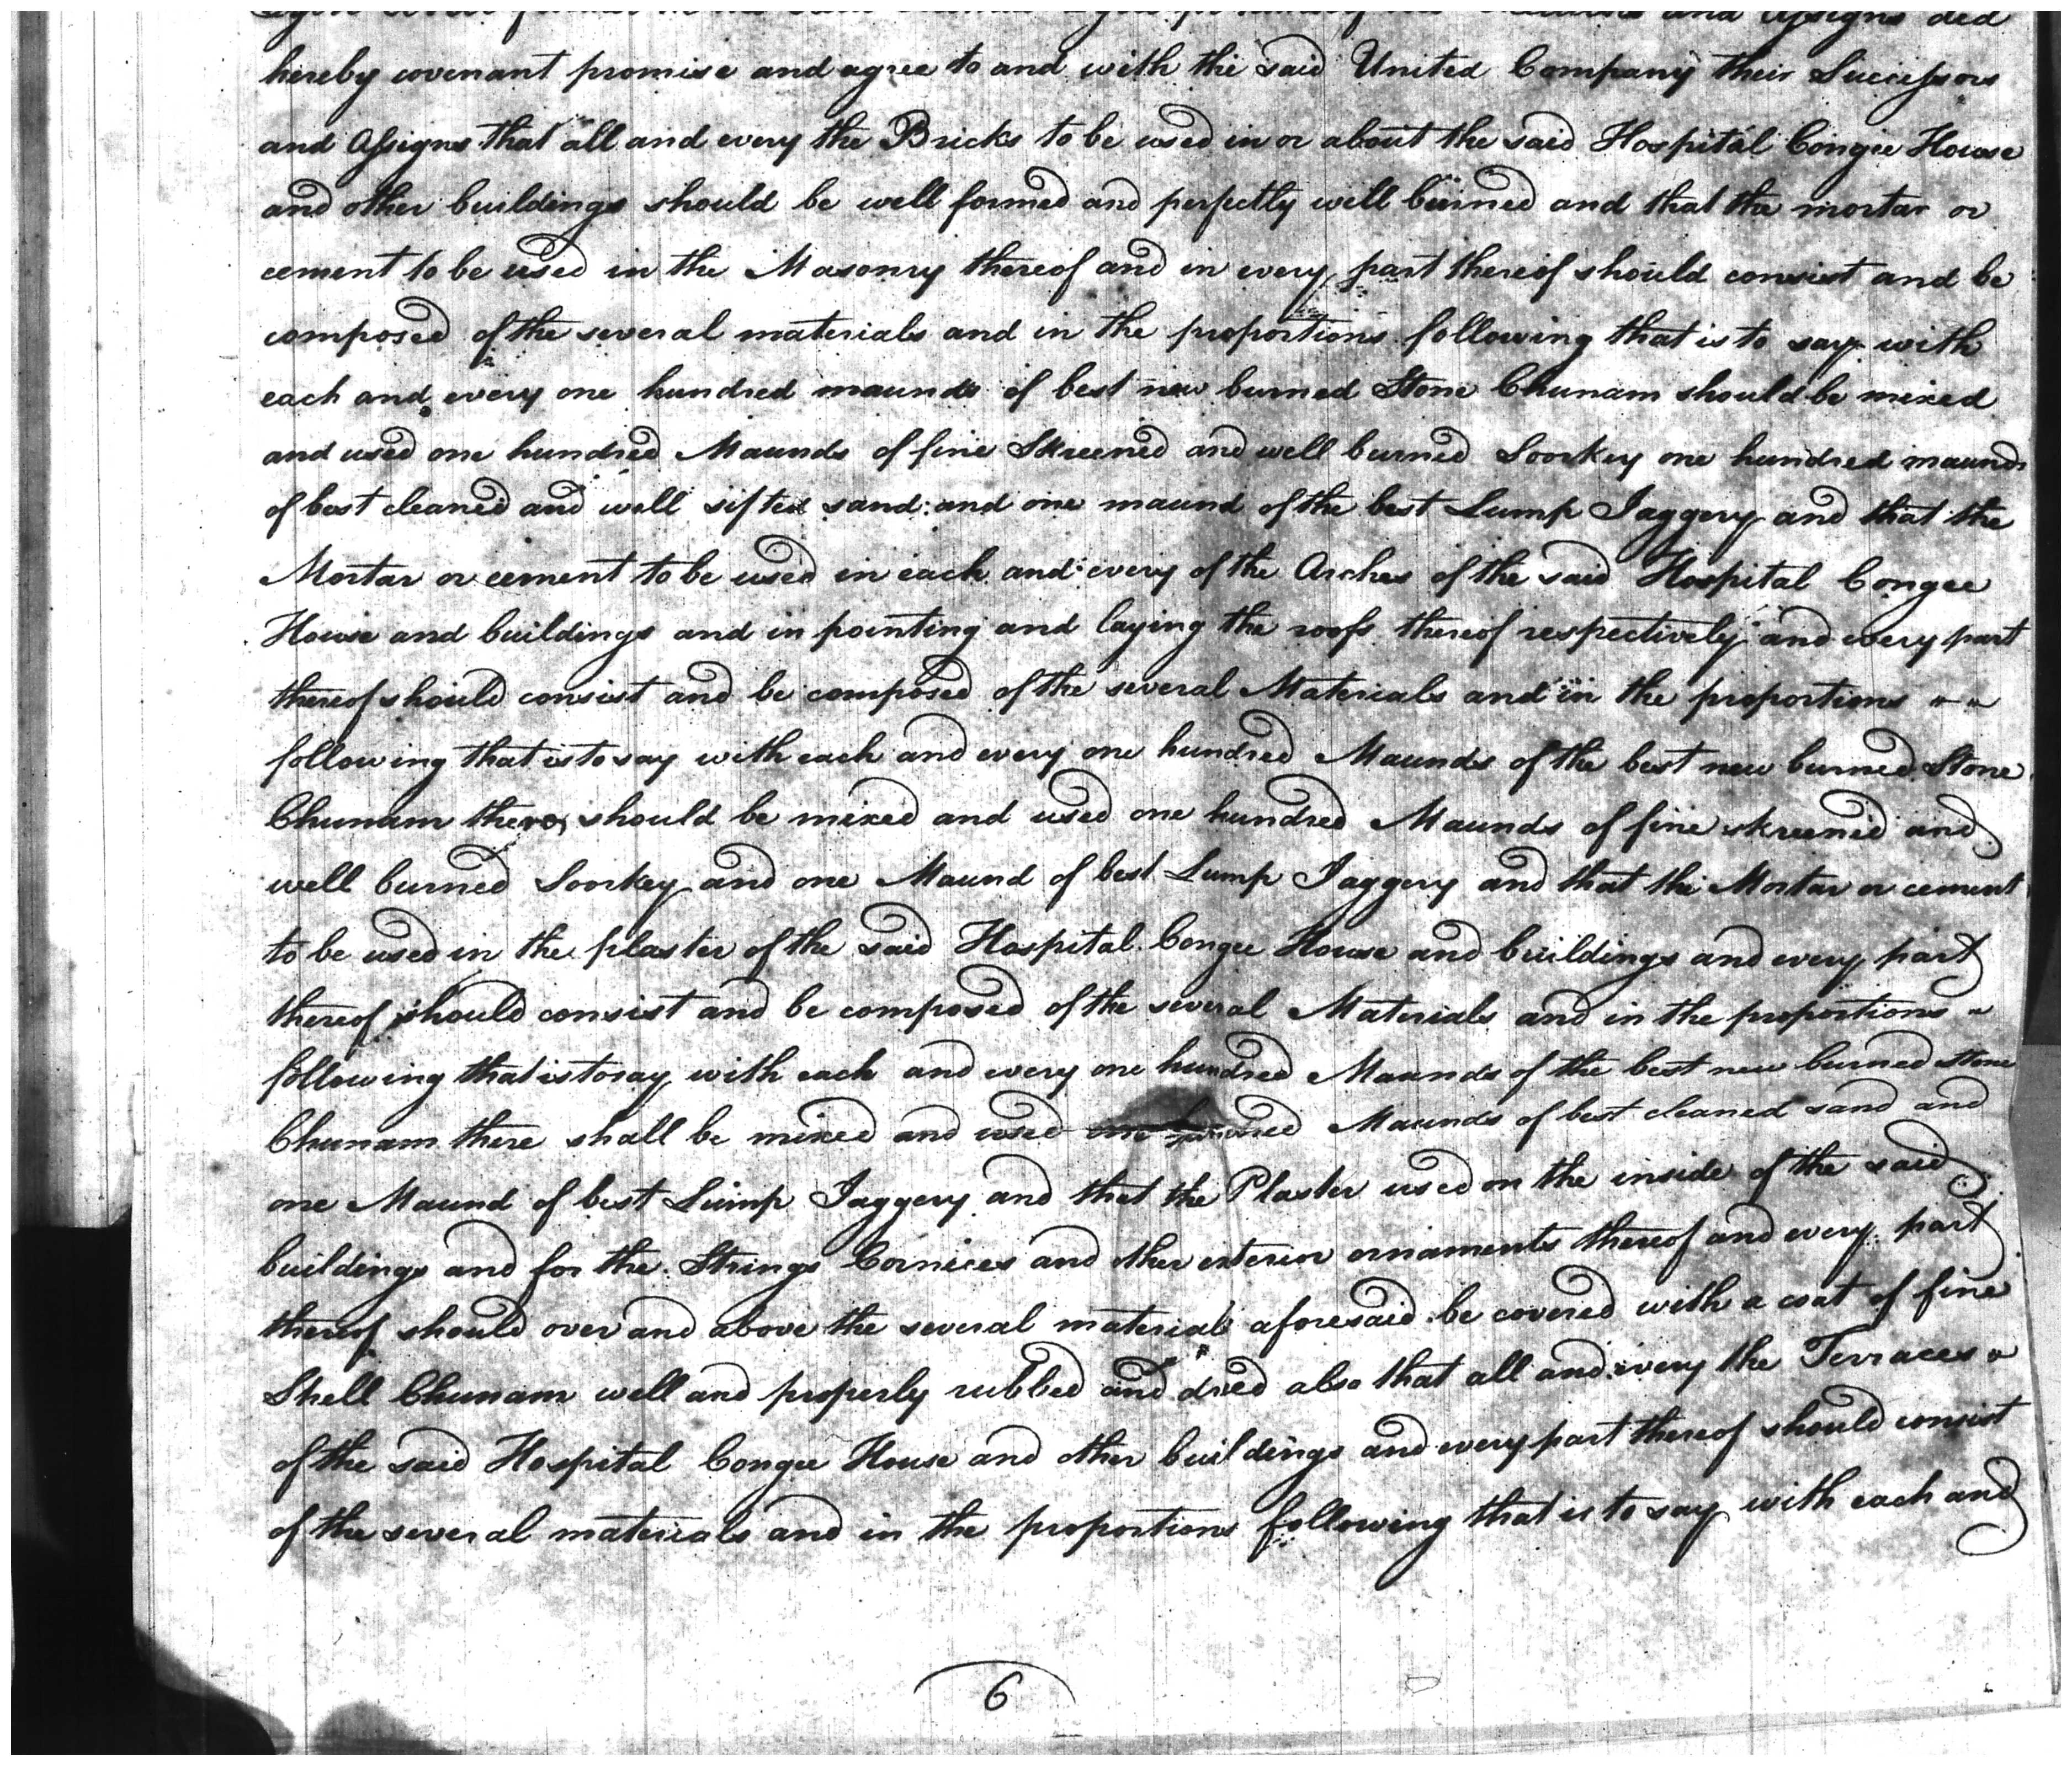 and Assigns did
hereby covenant promise and agree to and with the said United Company their Successors
and Assigns that all and every the Bricks to be used in or about the said Hospital Congee House
and other buildings should be well formed and perfectly well burned and that the mortar or
cement to be used in the Masonry thereof and in every part thereof should consist and be
composed of the several materials and in the proportions following that is to say with
each and every one hundred maunds of best new burned Stone Chunam should be mixed
and used one hundred Maunds of fine Skreened and well burned Soorkey one hundred maunds
of best cleaned and well sifted sand and one maund of the best Lump Jaggery and that the
Mortar or cement to be used in each and every of the Arches of the said Hospital Congee
House and buildings and in pointing and laying the roofs thereof respectively and every part
thereof should consist and be composed of the several Materials and in the proportions
following that is to say with each and every one hundred Maunds of the best new burned Stone
Chunam there should be mixed and used one hundred Maunds of fine skreened and
well burned Soorkey and one Maund of best Lump Jaggery and that the Mortar or cement
to be used in the plaster of the said Hospital Congee House and buildings and every part
thereof should consist and be composed of the several Materials and in the proportions
following that is to say with each and every one hundred Maunds of the best new burned stone
Chunam there shall be mixed and used one hundred Maunds of best cleaned sand and
one Maund of best Lump Jaggery and that the Plaster used on the inside of the said
buildings and for the Strings Cornices and other exterior ornaments thereof and every part
thereof should over and above the several materials aforesaid be covered with a coat of fine
Shell Chunam well and properly rubbed and dried also that all and every the Terraces
of the said Hospital Congee House and other buildings and every part thereof should consist
of the several materials and in the proportions following that is to say with each and
6